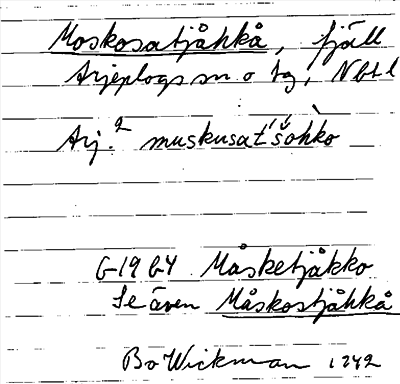 Moskosatjåhkå, fjäll
Arjeplogs sn o tg, Nbtl
Arj.² muskusat́šohko
G1964 Måsketjåkko
Se även Måskostjåhkå
Bo Wickman 1942